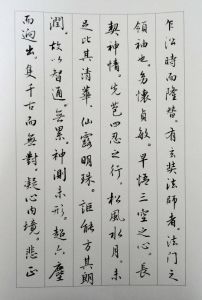 乍沿時而隆替。有玄奘法師者。法門之
領袖也。幼懷貞敏。早悟三空之心。長
契神情。先苞四忍之行。松風水月。未
足比其清華。仙露明珠。詎能方其朗
潤。故以智通無累。神測未形。超六塵
而迥出。隻千古而無對。凝心內境。悲正